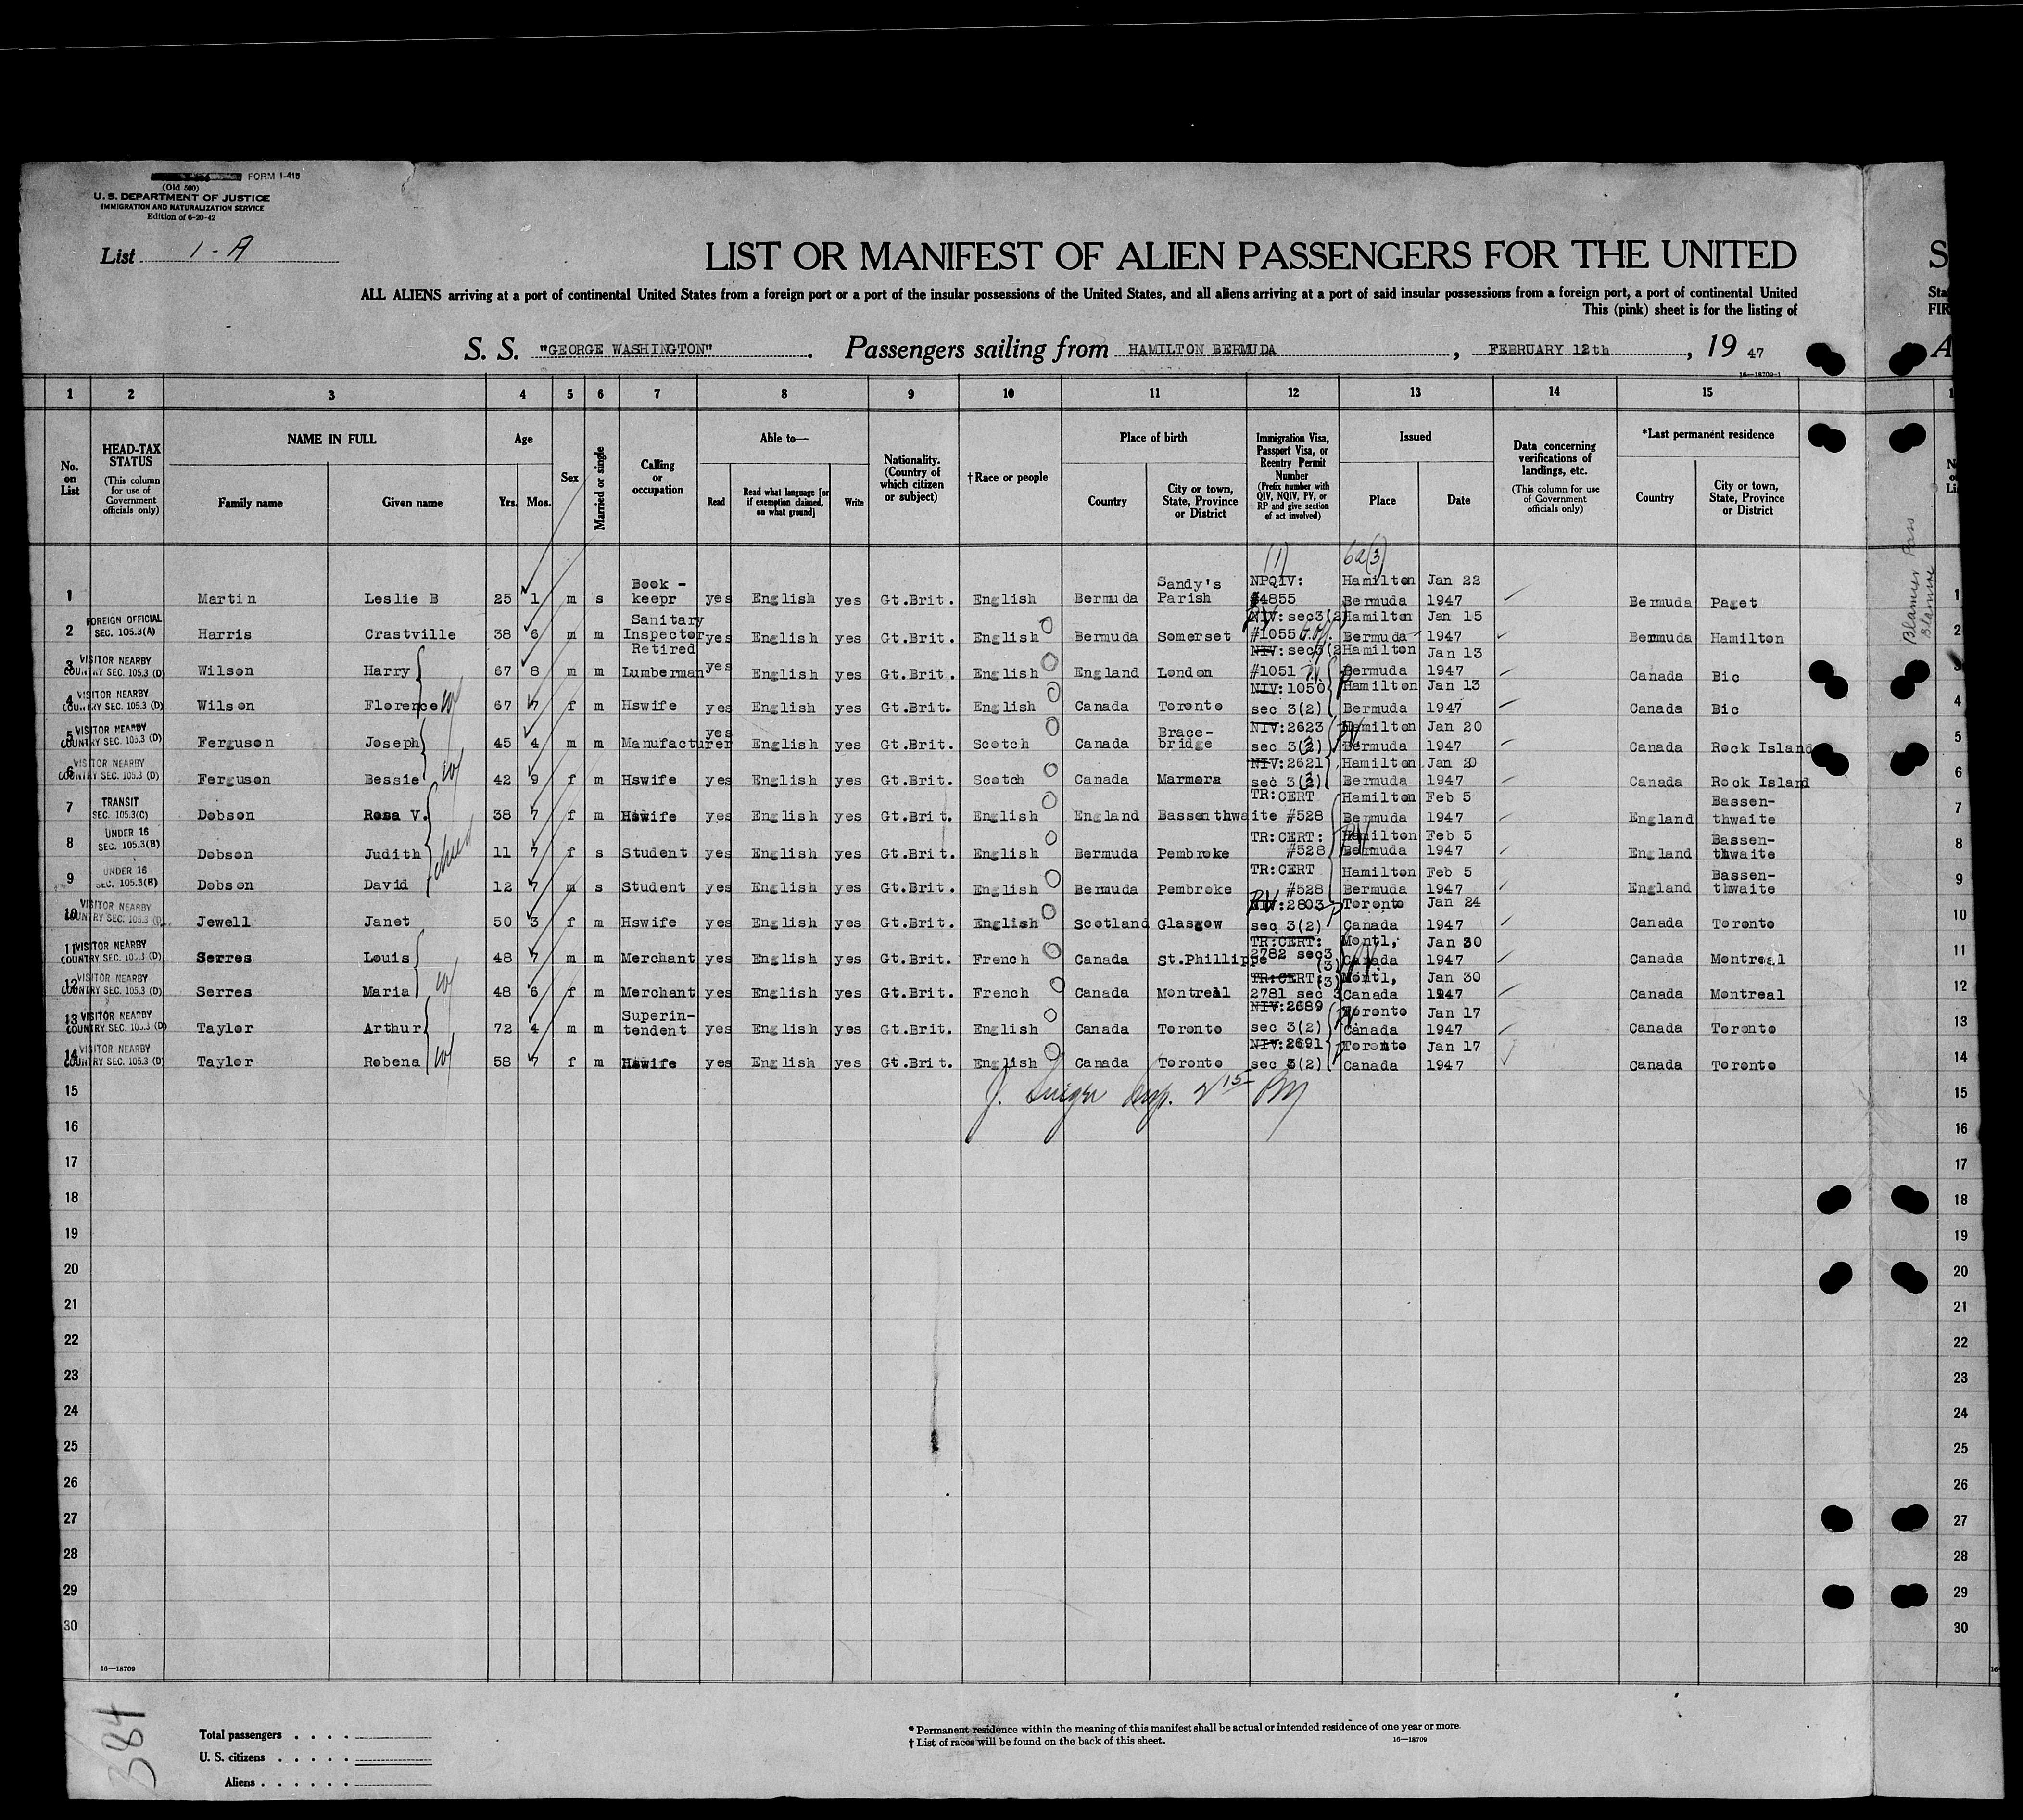 FORM I-415
(Old 500)
U. S. DEPARTMENT OF JUSTICE
IMMIGRATION AND NATURALIZATION SERVICE
Edition of 6-20-42
List 1-A
LIST OR MANIFEST OF ALIEN PASSENGERS FOR THE UNITED
ALL ALIENS arriving at a port of continental United States from a foreign port or a port of the insular possessions of the United States, and all aliens arriving at a port of said insular possessions from a foreign port, a port of continental United
This (pink) sheet is for the listing of
S. S. "GEORGE WASHINGTON" . Passengers sailing from HAMILTON BERMUDA , FEBRUARY 12th , 19 47
16—18709-1
1 2 3 4 5 6 7 8 9 10 11 12 13 14 15
No. on List
HEAD-TAX STATUS (This column for use of Government officials only)
NAME IN FULL Family name Given name
Age Yrs. Mos.
Sex
Married or single
Calling or occupation
Able to— Read Read what language [or if exemption claimed, on what ground] Write
Nationality. (Country of which citizen or subject)
†Race or people
Place of birth Country City or town, State, Province or District
Immigration Visa, Passport Visa, or Reentry Permit Number (Prefix number with QIV, NQIV, PV, or RP and give section of act involved)
Issued Place Date
Data concerning verifications of landings, etc. (This column for use of Government officials only)
*Last permanent residence Country City or town, State, Province or District
(1) 6a(3)
1 Martin Leslie B 25 1 m s Book - keepr yes English yes Gt.Brit. English Bermuda Sandy's Parish NPQIV: #4855 Hamilton Bermuda Jan 22 1947 Bermuda Paget 1
2 FOREIGN OFFICIAL SEC. 105.3(A) Harris Crastville 38 6 m m Sanitary Inspector yes English yes Gt.Brit. English Bermuda Somerset NIV: sec3(2) #1055 Hamilton Bermuda Jan 15 1947 Bermuda Hamilton 2
3 VISITOR NEARBY COUNTRY SEC. 105.3 (D) Wilson Harry 67 8 m m Retired Lumberman yes English yes Gt.Brit. English England London NIV: sec3(2 #1051 Hamilton Bermuda Jan 13 1947 Canada Bic 3
4 VISITOR NEARBY COUNTRY SEC. 105.3 (D) Wilson Florence 67 7 f m Hswife yes English yes Gt.Brit. English Canada Toronto NIV:1050 sec 3(2) Hamilton Bermuda Jan 13 1947 Canada Bic 4
5 VISITOR NEARBY COUNTRY SEC. 105.3 (D) Ferguson Joseph 45 4 m m Manufacturer yes English yes Gt.Brit. Scotch Canada Brace- bridge NIV:2623 sec 3(2) Hamilton Bermuda Jan 20 1947 Canada Rock Island 5
6 VISITOR NEARBY COUNTRY SEC. 105.3 (D) Ferguson Bessie 42 9 f m Hswife yes English yes Gt.Brit. Scotch Canada Marmora NIV:2621 sec 3(2) Hamilton Bermuda Jan 20 1947 Canada Rock Island 6
7 TRANSIT SEC. 105.3(C) Dobson Rosa V. 38 7 f m Hswife yes English yes Gt.Brit. English England Bassenthwaite TR:CERT #528 Hamilton Bermuda Feb 5 1947 England Bassen- thwaite 7
8 UNDER 16 SEC. 105.3(B) Dobson Judith 11 7 f s Student yes English yes Gt.Brit. English Bermuda Pembroke TR:CERT: #528 Hamilton Bermuda Feb 5 1947 England Bassen- thwaite 8
9 UNDER 16 SEC. 105.3(B) Dobson David 12 7 m s Student yes English yes Gt.Brit. English Bermuda Pembroke TR:CERT #528 Hamilton Bermuda Feb 5 1947 England Bassen- thwaite 9
10 VISITOR NEARBY COUNTRY SEC. 105.3 (D) Jewell Janet 50 3 f m Hswife yes English yes Gt.Brit. English Scotland Glasgow NIV:2803 sec 3(2) Toronto Canada Jan 24 1947 Canada Toronto 10
11 VISITOR NEARBY COUNTRY SEC. 105.3 (D) Serres Louis 48 7 m m Merchant yes English yes Gt.Brit. French Canada St.Phillippe TR:CERT: 2782 sec3 (3) Montl, Canada Jan 30 1947 Canada Montreal 11
12 VISITOR NEARBY COUNTRY SEC. 105.3 (D) Serres Maria 48 6 f m Merchant yes English yes Gt.Brit. French Canada Montreal TR:CERT: (3) 2781 sec 3 Montl, Canada Jan 30 1947 Canada Montreal 12
13 VISITOR NEARBY COUNTRY SEC. 105.3 (D) Taylor Arthur 72 4 m m Superin- tendent yes English yes Gt.Brit. English Canada Toronto NIV:2689 sec 3(2) Toronto Canada Jan 17 1947 Canada Toronto 13
14 VISITOR NEARBY COUNTRY SEC. 105.3 (D) Taylor Robena 58 7 f m Hswife yes English yes Gt.Brit. English Canada Toronto NIV:2691 sec 3(2) Toronto Canada Jan 17 1947 Canada Toronto 14
15 15
16 16
17 17
18 18
19 19
20 20
21 21
22 22
23 23
24 24
25 25
26 26
27 27
28 28
29 29
30 30
16—18709
384
Total passengers
U. S. citizens
Aliens
* Permanent residence within the meaning of this manifest shall be actual or intended residence of one year or more.
† List of races will be found on the back of this sheet.
16—18709